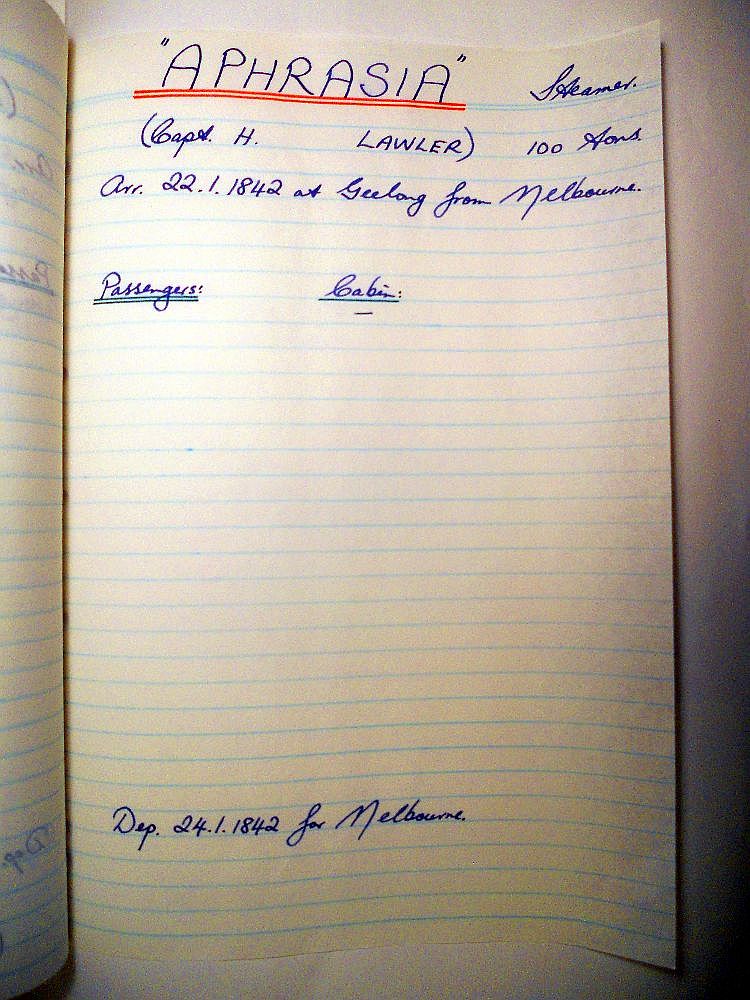 "APHRASIA" Steamer.
(Capt. H. LAWLER) 100 tons.
Arr. 22.1.1842 at Geelong from Melbourne.
Passengers: Cabin:
—
Dep. 24.1.1842 for Melbourne.